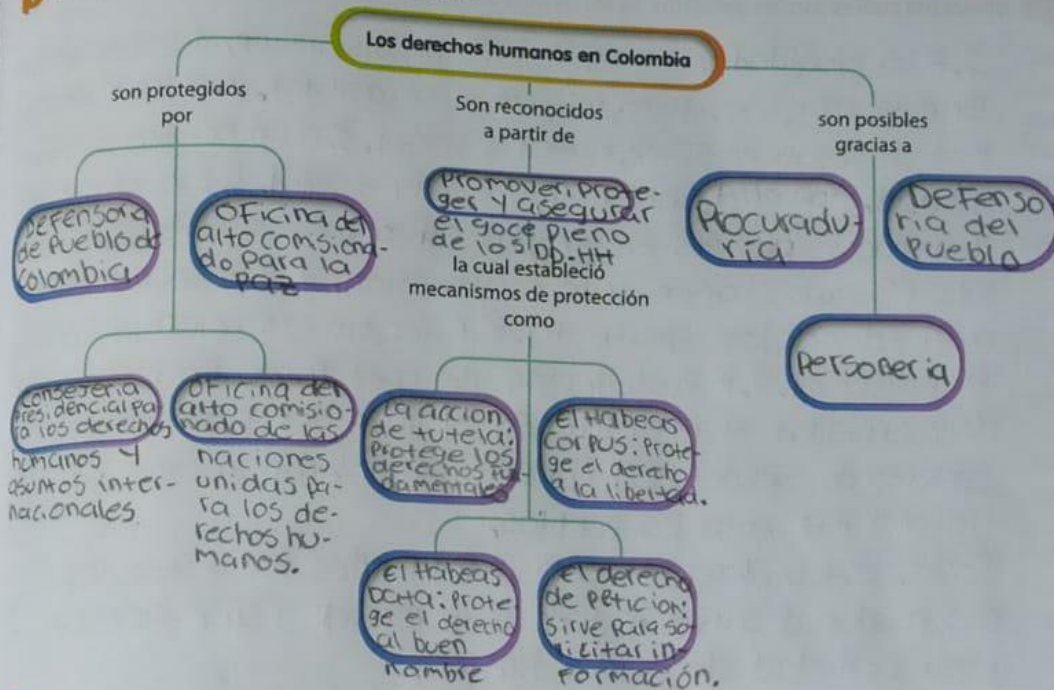 Los derechos humanos en Colombia
son protegidos
por
Defensoria
de Pueblo de
Colombia
Oficina del
alto comsiona-
do para la
paz
Consejeria
presidencial pa
ra los derechos
humanos y
asuntos inter-
nacionales.
Oficina del
alto comisio-
nado de las
naciones
unidas pa-
ra los de-
rechos hu-
manos.
Son reconocidos
a partir de
Promover, prote-
ger y asegurar
el goce pleno
de los DD-HH
la cual estableció
mecanismos de protección
como
La accion
de tutela:
Protege los
derechos fun
damentales
El Habeas
Corpus: Prote-
ge el derecho
a la libertad.
El Habeas
Data: Prote
ge el derecho
al buen
nombre
El derecho
de peticion:
Sirve para so-
licitar in-
formación.
son posibles
gracias a
Procuradu-
ría
Defenso
ria del
Pueblo
Personeria